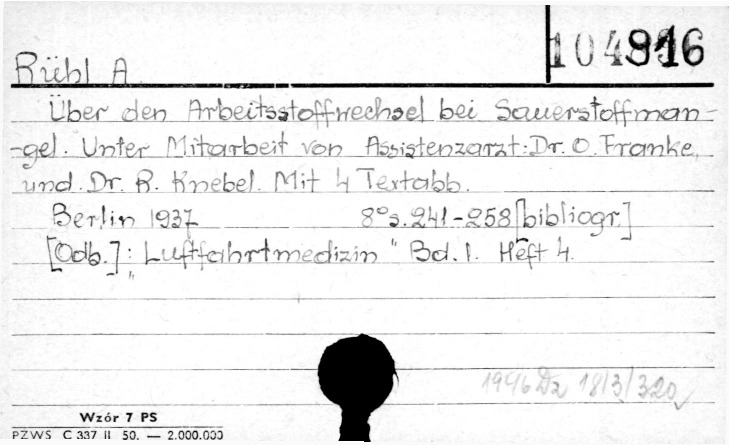 104916
Rühl A.
Über den Arbeitsstoffwechsel bei Sauerstoffman-
-gel. Unter Mitarbeit von Assistenzarzt: Dr. O. Franke,
und. Dr. R. Knebel. Mit 4 Textabb.
Berlin 1937 8° s. 241-258 [bibliogr.]
[Odb.]: „Luftfahrtmedizin" Bd. 1. Heft 4.
1946 18/3/320
Wzór 7 PS
PZWS C 337 II 50. — 2.000.000